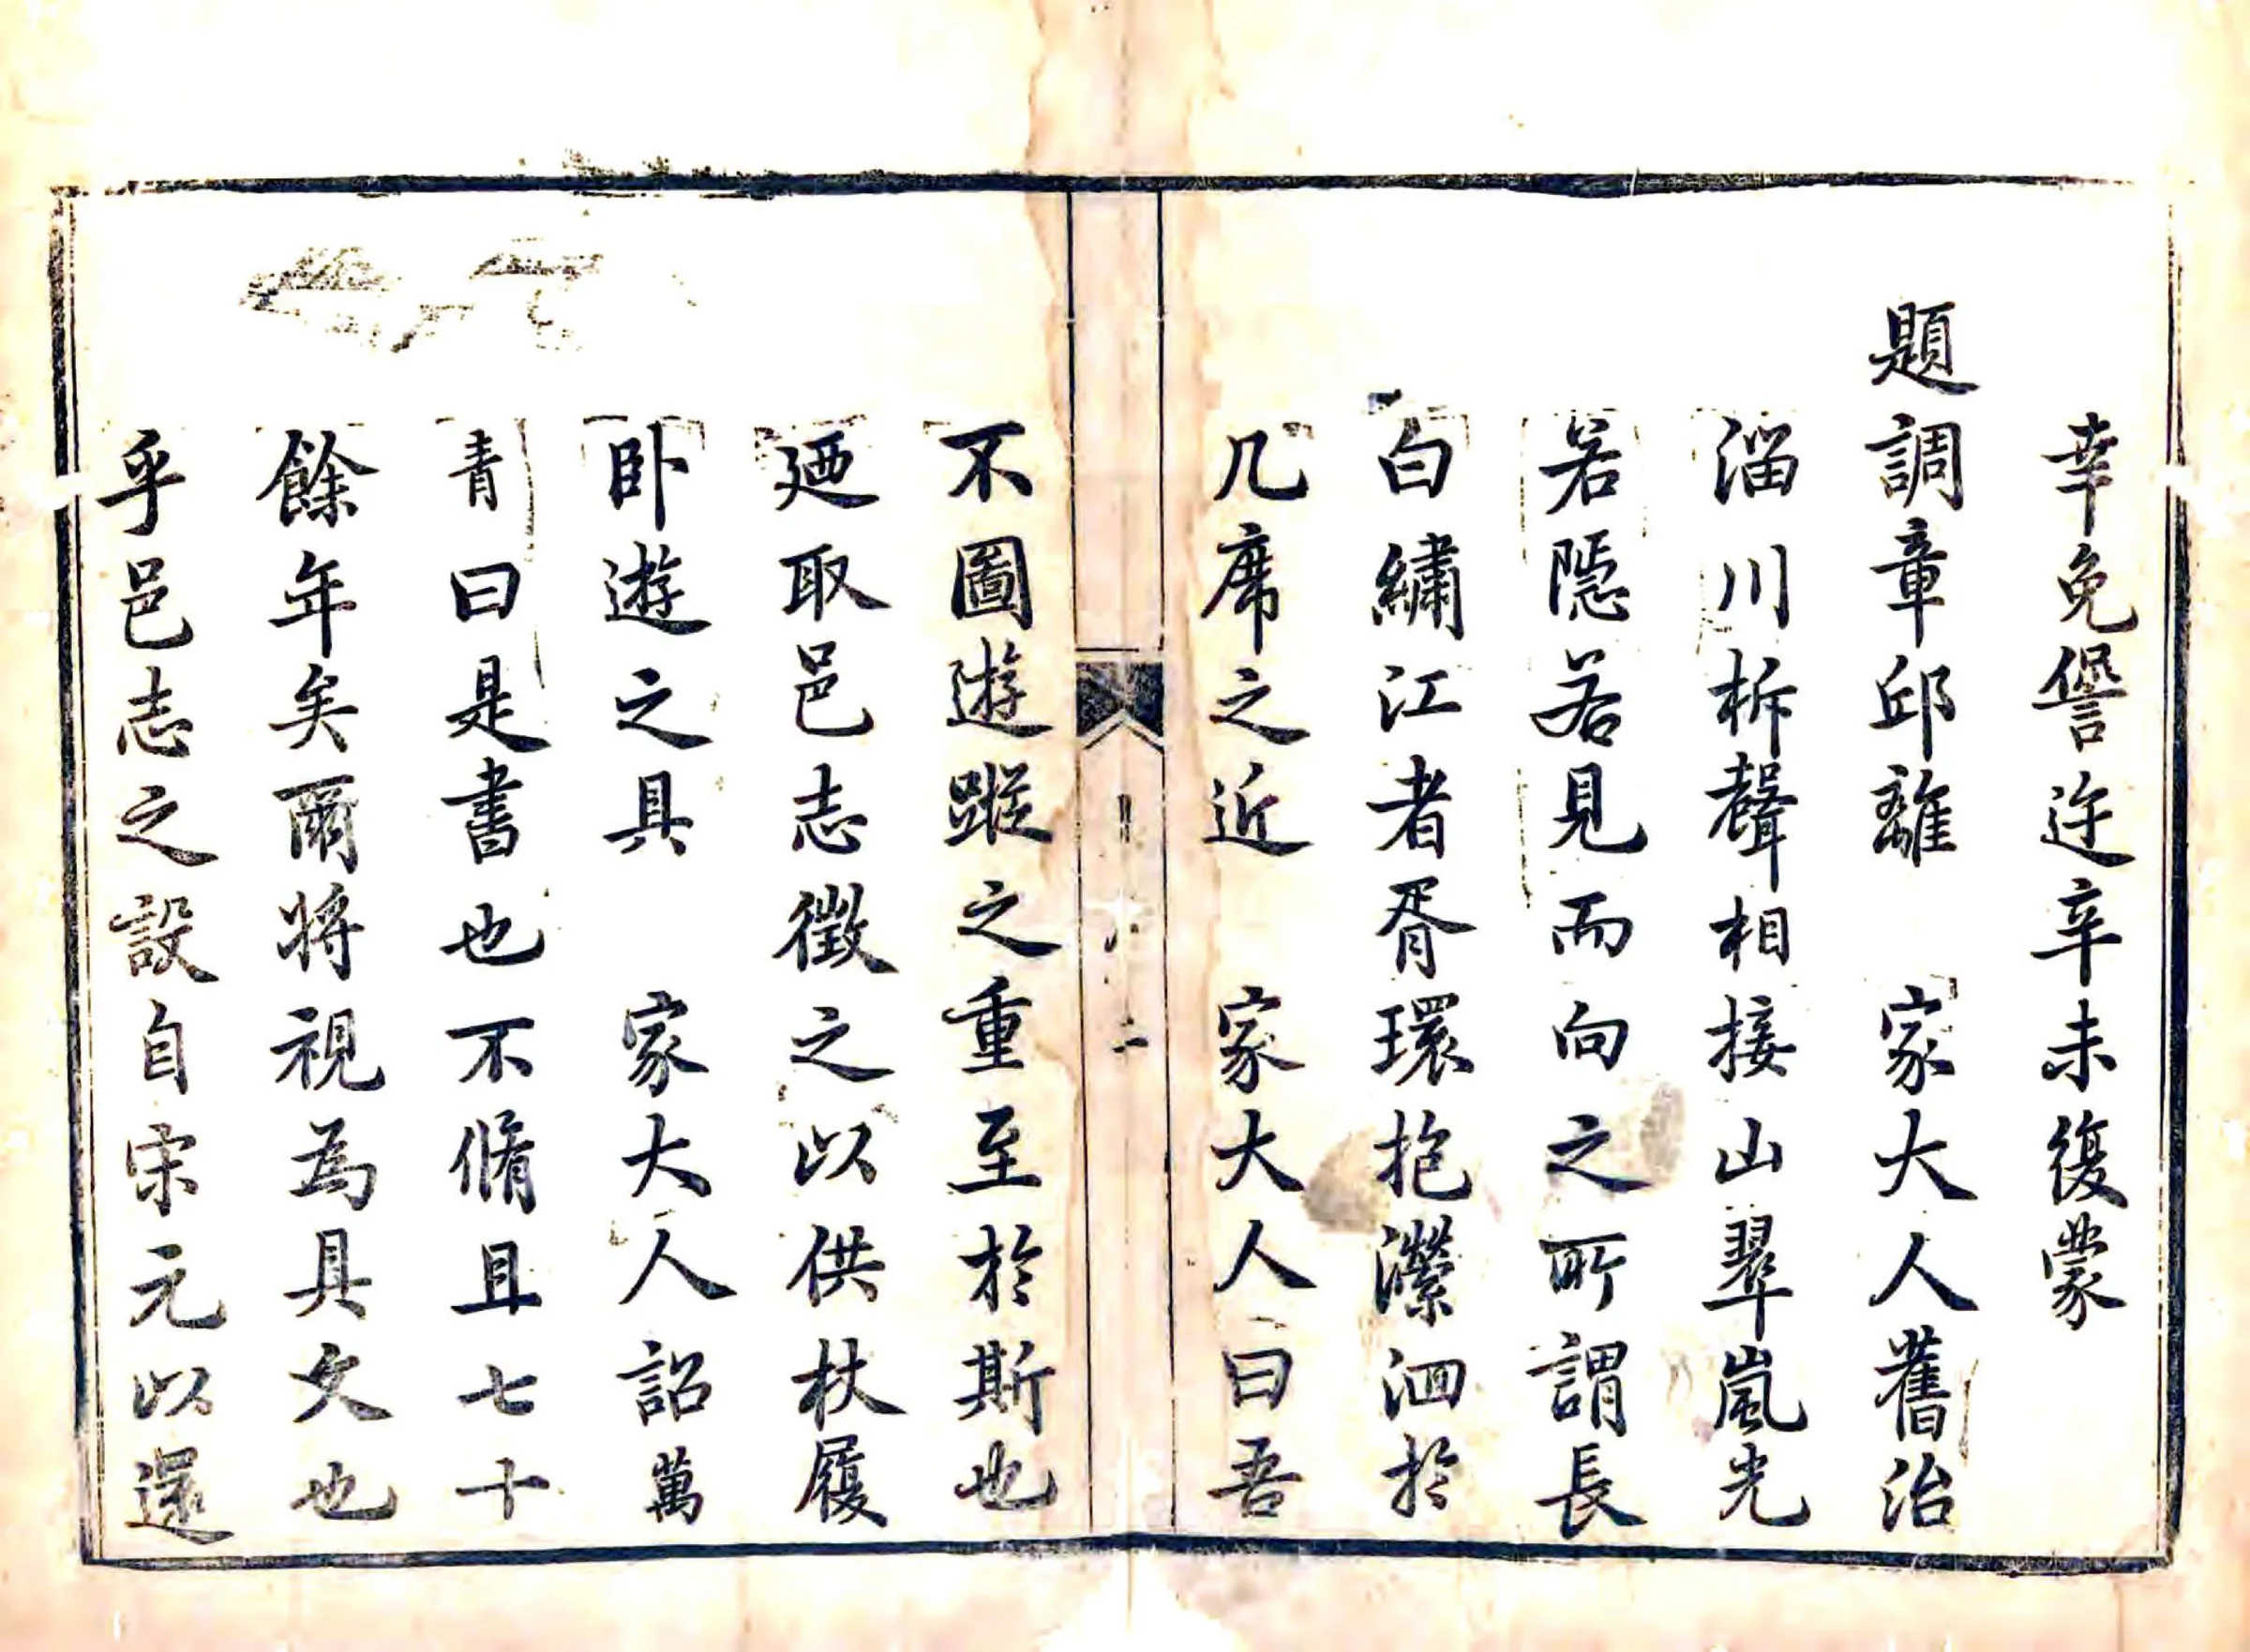 幸免諐迕辛未復蒙
題調章邱離　家大人舊治
淄川柝聲相接山翠嵐光
若隱若見而向之所謂長
白繡江者胥環抱瀠洄於
几席之近　家大人曰吾
不圖遊蹤之重至於斯也
廼取邑志徵之以供杖履
臥遊之具　家大人詔萬
青曰是書也不脩且七十
餘年矣爾將視為具文也
乎邑志之設自宋元以還